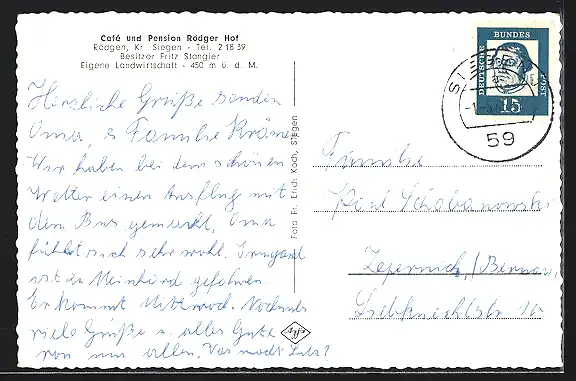 Café und Pension Rödger Hof
Rödgen, Kr. Siegen - Tel. 2 18 39
Besitzer Fritz Stangier
Eigene Landwirtschaft - 450 m ü. d. M.
Herzliche Grüße senden
Oma, & Familie
Wir haben bei dem schönen
Wetter einen Ausflug mit
dem Bus gemacht, Oma
fühlt sich sehr wohl. Irmgard
ist zu Meinhard gefahren.
Er kommt Mittwoch. Nochmals
viele Grüße u. alles Gute
von uns allen. Was macht Lutz?
Foto Fr. Erich Koch, Siegen
Agfa
DEUTSCHE
BUNDES
POST
15
59
Familie
Paul Schabanowski
Zepernick/Bernau
Liebknechtstr. 10